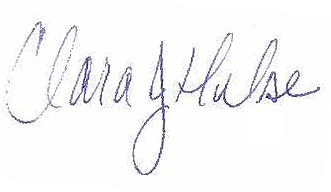 Clara J Hulse